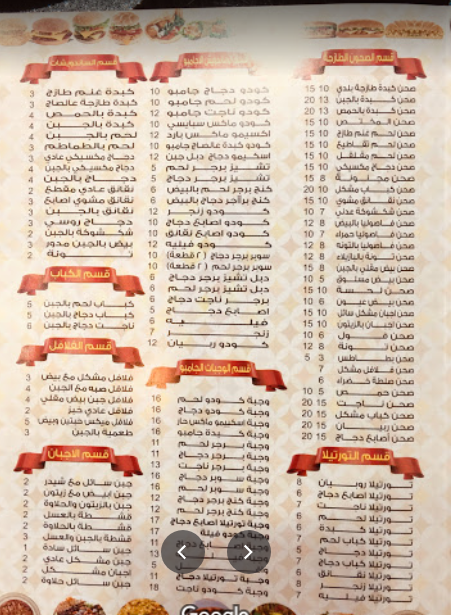 قسم الصحون الطازجة
صحن كبدة طازجة بلدي 10 15
صحن كبدة بالجبن 13 20
صحن كبدة بالحمص 13 20
صحن لحم غنم طازج 10 15
صحن لحم مقلقل 10 15
صحن دجاج مكسيكي 10 15
صحن كباب مشكل 10 20
صحن نقانق مشوي 10 15
صحن شكشوكة عدني 7 10
صحن فاصوليا بالبيض 8 12
صحن فاصوليا حمراء 7 10
صحن فاصوليا بالتونة 8 12
صحن بيض مقلي بالجبن 8 15
صحن بيض مسلوق 5 10
صحن بيض عيون 6 10
صحن اجبان مشكل سائل 10 15
صحن اجبان بالزيتون 10 15
صحن فول 6 10
صحن تونة 8 12
صحن بطاطس 3 5
صحن فلافل مشكل 7
صحن سلطة خضراء 6
صحن حمص 5 10
صحن كباب مشكل 15 20
صحن ربيان 15 20
صحن أصابع دجاج 15 20
قسم التورتيلا
تورتيلا روبيان 8
تورتيلا اصابع دجاج 6
تورتيلا ناجت 7
تورتيلا لحم 6
تورتيلا كبدة 6
تورتيلا كباب لحم 7
تورتيلا دجاج 5
تورتيلا كباب دجاج 7
تورتيلا نقانق 6
تورتيلا زنجر 8
تورتيلا فيليه 7
كودو دجاج جامبو 10
كودو لحم جامبو 10
كودو ناجت جامبو 12
كودو ماكس سبايسي 10
اكسيمو ماكس بارد 12
كودو كبدة عالصاج جامبو 10
اسكيمو دجاج دبل جبن 12
تشيز برجر لحم 5
تشيز برجر دجاج 5
كنج برجر لحم بالبيض 6
كنج برأجر دجاج بالبيض 6
كودو زنجر 12
كودو اصابع دجاج 10
كودو اصابع نقانق 10
كودو فيليه 12
سوبر برجر دجاج (٢ قطعة) 10
سوبر برجر لحم (٢ قطعة) 10
دبل تشيز برجر دجاج 6
دبل تشيز برجر لحم 6
برجر ناجت دجاج 6
اصابع دجاج 5
فيليه 6
زنجر 7
كودو ربيان 12
قسم الوجبات الجامبو
وجبة كودو لحم 16
وجبة كودو دجاج 16
وجبة اسكيمو ماكس حار 16
وجبة كبدة جامبو 16
وجبة برجر لحم 11
وجبة برجر دجاج 11
وجبة برجر ناجت 13
وجبة سوبر دجاج 16
وجبة سوبر لحم 16
وجبة كنج برجر دجاج 12
وجبة كنج برجر لحم 12
وجبة تورتيلا اصابع دجاج 17
وجبة كودو فيلة 17
وجبة تورتيلا دجاج 11
وجبة كودو ناجت 18
قسم الساندويتشات
كبدة غنم طازج 3
كبدة طازجة عالصاج 3
كبدة بالحمص 4
كبدة بالجبن 4
لحم بالجبن 4
لحم بالطماطم 3
دجاج مكسيكي عادي 3
دجاج مكسيكي بالجبن 4
دجاج بالجبن 4
نقانق عادي مقطع 2
نقانق مشوي اصابع 3
نقانق بالجبن 3
دجاج روسي 3
شكشوكة بالجبن 2
بيض بالجبن مدور 3
تونة 2
قسم الكباب
كباب لحم بالجبن 5
كباب دجاج بالجبن 5
ناجت دجاج بالجبن 6
قسم الفلافل
فلافل مشكل مع بيض 3
فلافل صبه مع الجبن 4
فلافل جبن بيض مقلي 4
فلافل عادي خبز 2
فلافل ميكس جبنين وبيض 5
طعمية بالجبن 3
قسم الاجبان
جبن سائل مع شيدر 2
جبن ابيض مع زيتون 2
جبن بالزيتون والحلاوة 2
قشطة بالعسل 2
قشطة بالحلاوة 2
قشطة بالجبن والعسل 3
جبن سائل سادة 1
جبن مشكل عادي 2
اجبان مشكل 2
جبن سائل حلاوة 2
Google